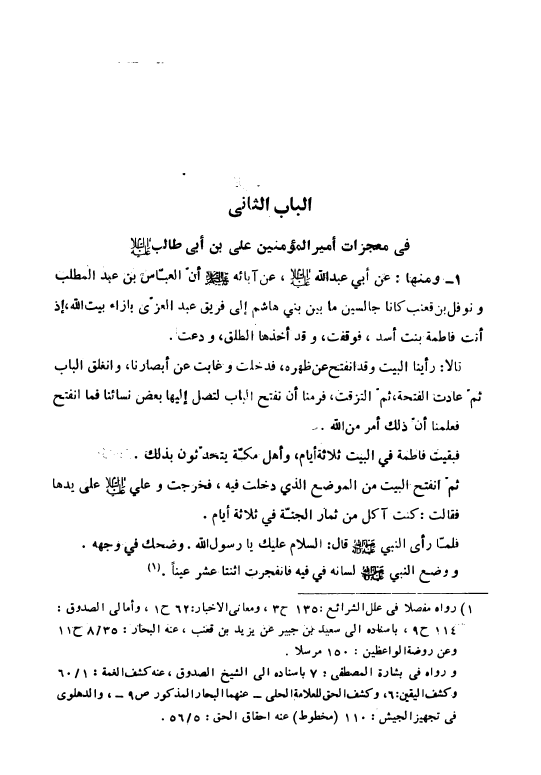 الباب الثانى
فى معجزات أمير المؤمنين على بن أبى طالب عليه السلام
١ـ و منها : عن أبي عبدالله عليه السلام ، عن آبائه عليهم السلام أنّ العبّاس بن عبد المطلب
و نوفل بن قعنب كانا جالسين ما بين بني هاشم إلى فريق عبد العزّى بازاء بيت الله، إذ
أتت فاطمة بنت أسد ، فوقفت، و قد أخذها الطلق، و دعت .
قالا: رأينا البيت وقد انفتح عن ظهره، فدخلت و غابت عن أبصارنا، و انغلق الباب
ثمّ عادت الفتحة، ثمّ التزقت، فرمنا أن نفتح الباب لتصل إليها بعض نسائنا فما انفتح
فعلمنا أنّ ذلك أمر من الله .
فبقيت فاطمة في البيت ثلاثة أيام، وأهل مكّة يتحدّثون بذلك .
ثمّ انفتح البيت من الموضع الذي دخلت فيه ، فخرجت و علي عليه السلام على يدها
فقالت : كنت آكل من ثمار الجنّة في ثلاثة أيام .
فلمّا رأى النبي قال: السلام عليك يا رسول الله . وضحك في وجهه .
و وضع النبي لسانه في فيه فانفجرت اثنتا عشر عيناً .(١)
١) رواه مفصلا فى علل الشرائع : ١٣٥ ح٣ ، ومعانى الاخبار: ٦٢ ح١ ، وأمالى الصدوق :
١١٤ ح٩ ، باسناده الى سعيد بن جبير عن يزيد بن قعنب ، عنه البحار : ٨/٣٥ ح١١
وعن روضة الواعظين : ١٥٠ مرسلا .
و رواه فى بشارة المصطفى : ٧ باسناده الى الشيخ الصدوق ، عنه كشف الغمة : ٦٠/١
وكشف اليقين: ٦، وكشف الحق للعلامة الحلى ـ عنهما البحار المذكور ص٩ ـ، والدهلوى
فى تجهيز الجيش : ١١٠ (مخطوط) عنه احقاق الحق : ٥٦/٥ .